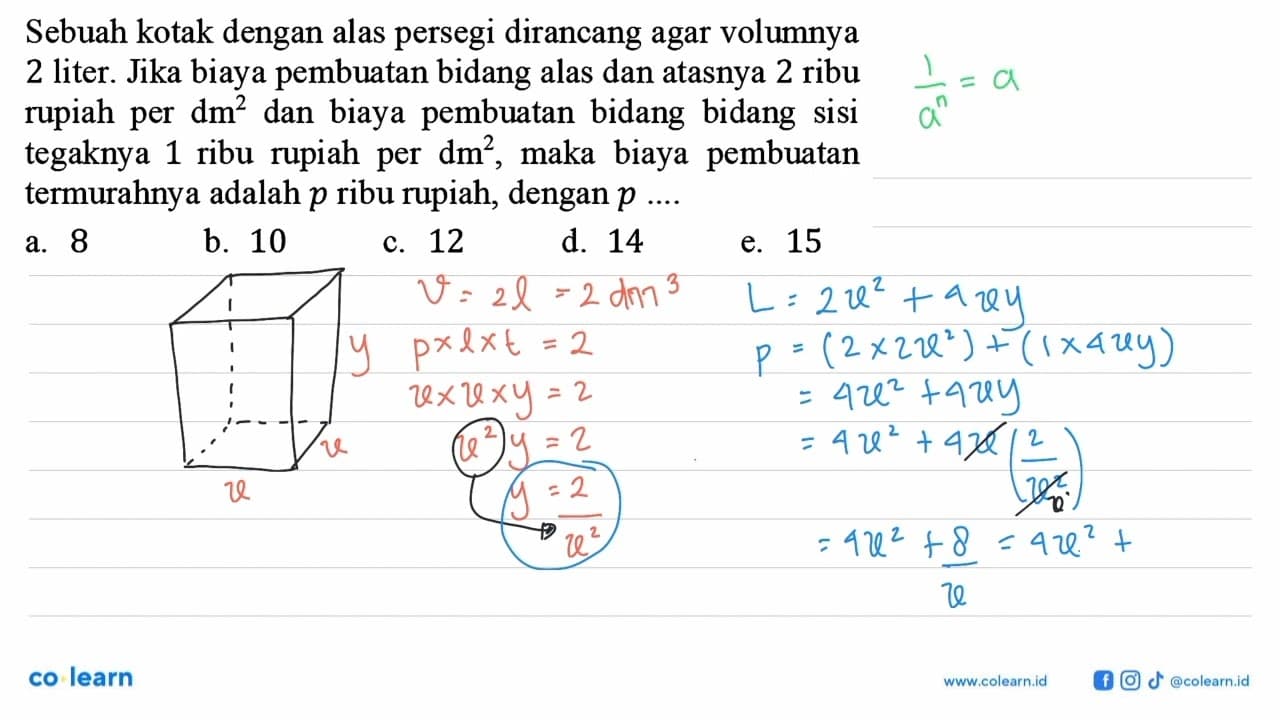 Sebuah kotak dengan alas persegi dirancang agar volumnya
2 liter. Jika biaya pembuatan bidang alas dan atasnya 2 ribu
rupiah per dm² dan biaya pembuatan bidang bidang sisi
tegaknya 1 ribu rupiah per dm², maka biaya pembuatan
termurahnya adalah p ribu rupiah, dengan p ....
a. 8 b. 10 c. 12 d. 14 e. 15
1/aⁿ = a
y
x
x
V = 2l = 2 dm³
p×l×t = 2
x×x×y = 2
x²y = 2
y = 2/x²
L = 2x² + 4xy
p = (2×2x²) + (1×4xy)
= 4x² + 4xy
= 4x² + 4x (2/x²) x
= 4x² + 8/x = 4x² +
co learn
www.colearn.id
@colearn.id